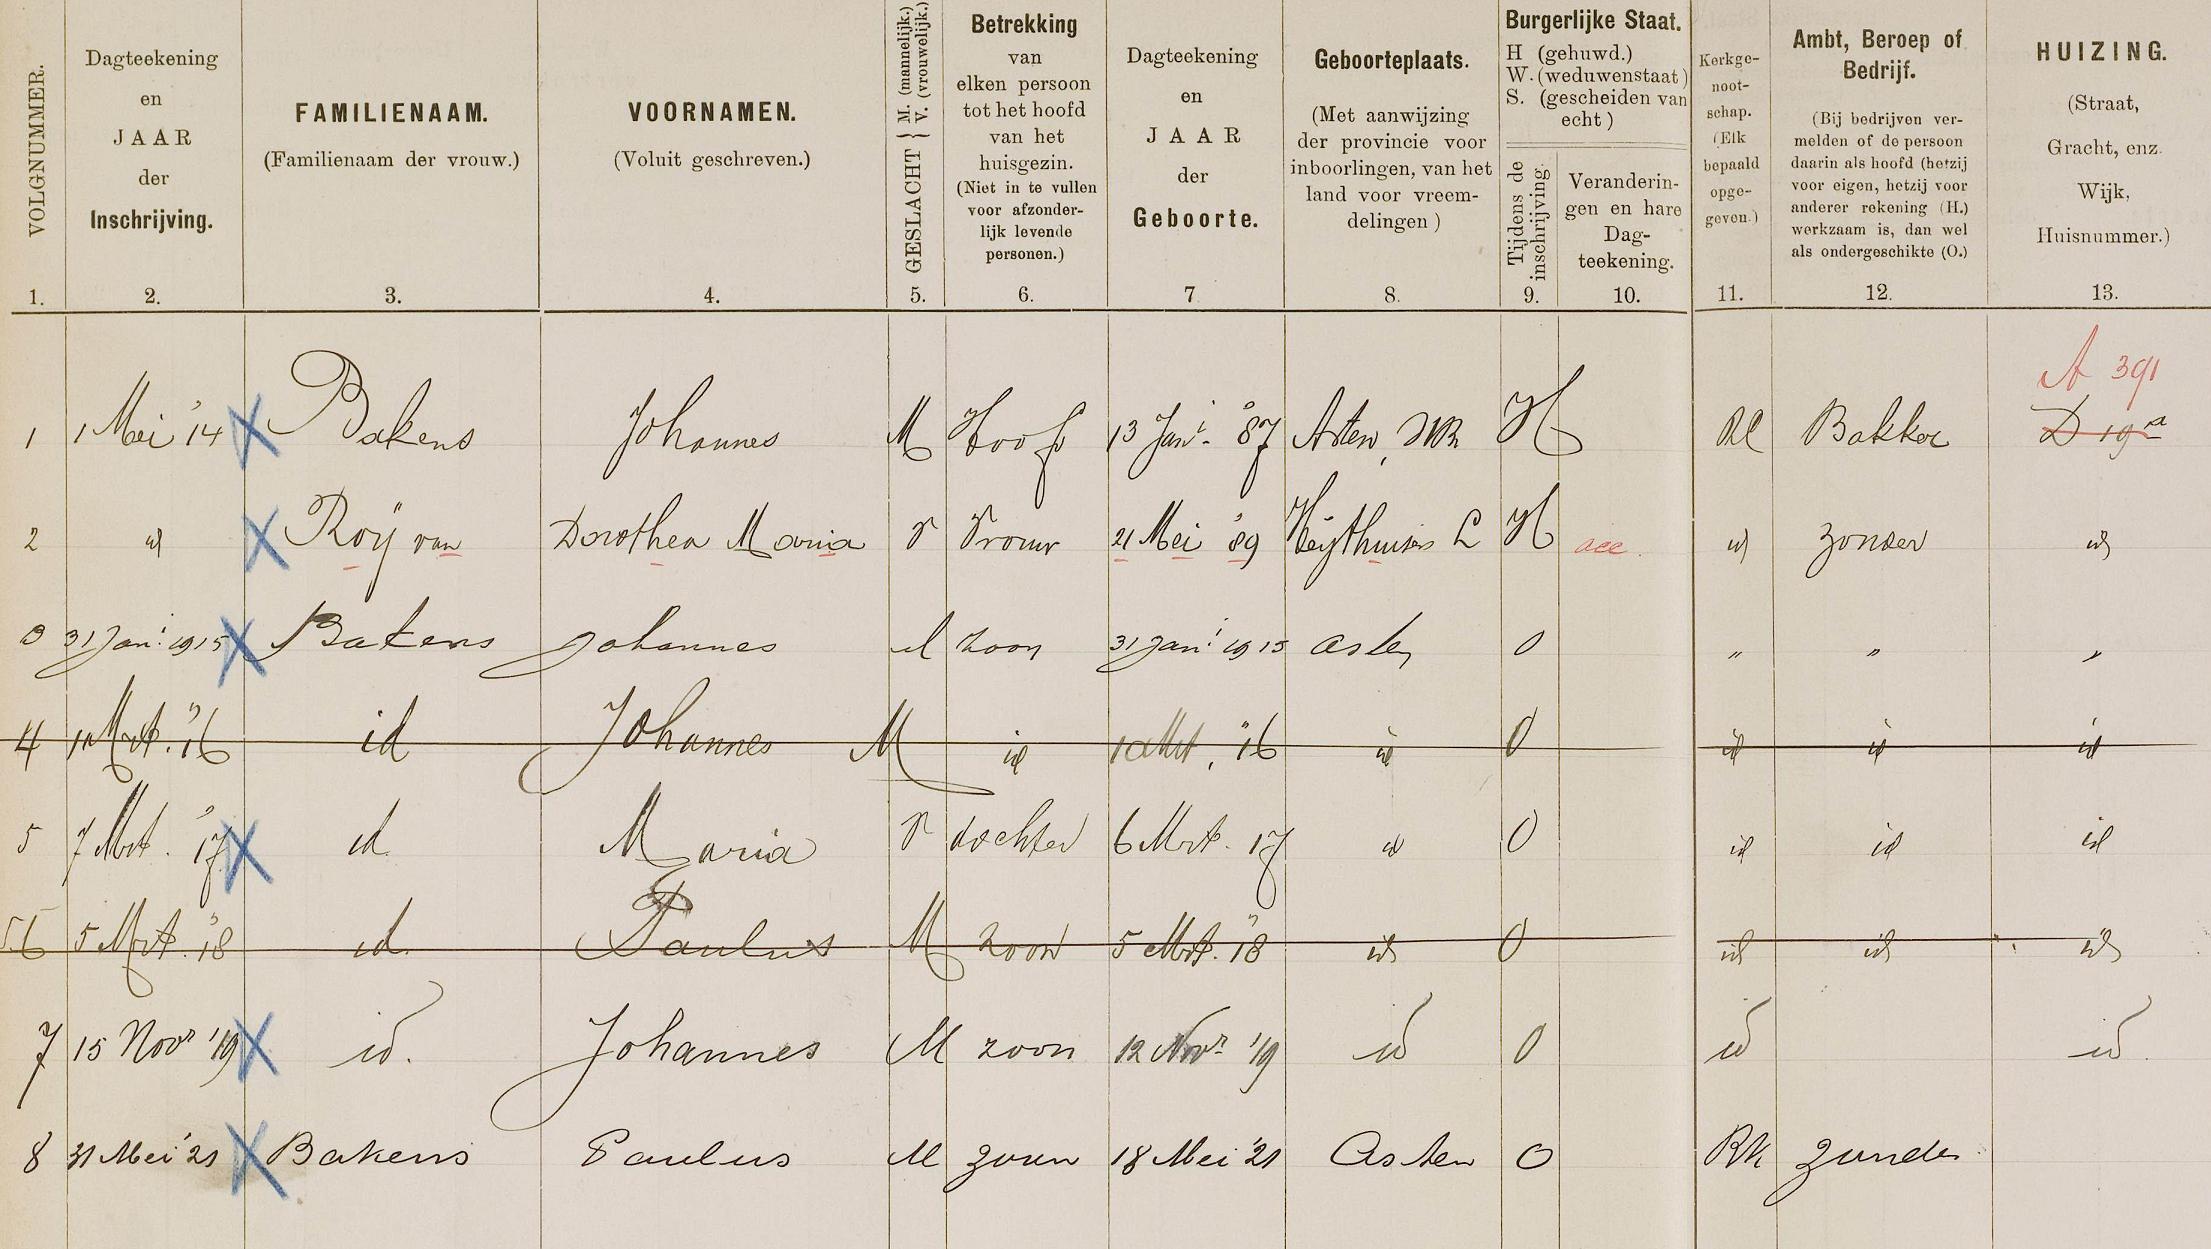 VOLGNUMMER.
Dagteekening
en
JAAR
der
Inschrijving.
FAMILIENAAM.
(Familienaam der vrouw.)
VOORNAMEN.
(Voluit geschreven.)
GESLACHT { M. (mannelijk.) V. (vrouwelijk.)
Betrekking
van
elken persoon
tot het hoofd
van het
huisgezin.
(Niet in te vullen
voor afzonder-
lijk levende
personen.)
Dagteekening
en
JAAR
der
Geboorte.
Geboorteplaats.
(Met aanwijzing
der provincie voor
inboorlingen, van het
land voor vreem-
delingen)
Burgerlijke Staat.
H (gehuwd.)
W. (weduwenstaat)
S. (gescheiden van
echt)
Tijdens de
inschrijving.
Veranderin-
gen en hare
Dag-
teekening.
Kerkge-
noot-
schap.
(Elk
bepaald
opge-
geven.)
Ambt, Beroep of
Bedrijf.
(Bij bedrijven ver-
melden of de persoon
daarin als hoofd (hetzij
voor eigen, hetzij voor
anderer rekening (H.)
werkzaam is, dan wel
als ondergeschikte (O.)
HUIZING.
(Straat,
Gracht, enz.
Wijk,
Huisnummer.)
1. 2. 3. 4. 5. 6. 7 8. 9. 10. 11. 12. 13.
A 391
1 1 Mei '14 Bakens Johannes M Hoofd 13 Jan. '87 Asten, NB H RC Bakker D 19a
2 id Roÿ van Dorothea Maria V Vrouw 21 Mei '89 Heÿthuisen L H acc. id zonder id
3 31 Jan. 1915 Bakens Johannes M zoon 31 Jan. 1915 Asten O " " "
4 Mrt. '16 id Johannes M id Mrt. '16 id O id id id
5 7 Mrt. '17 id Maria V dochter 6 Mrt. 17 id O id id id
6 5 Mrt. '18 id. Paulus M zoon 5 Mrt. '18 id O id id id
7 15 Novr '19 id. Johannes M zoon 12 Novr '19 id O id id.
8 31 Mei '21 Bakens Paulus M zoon 18 Mei '21 Asten O RK zonder